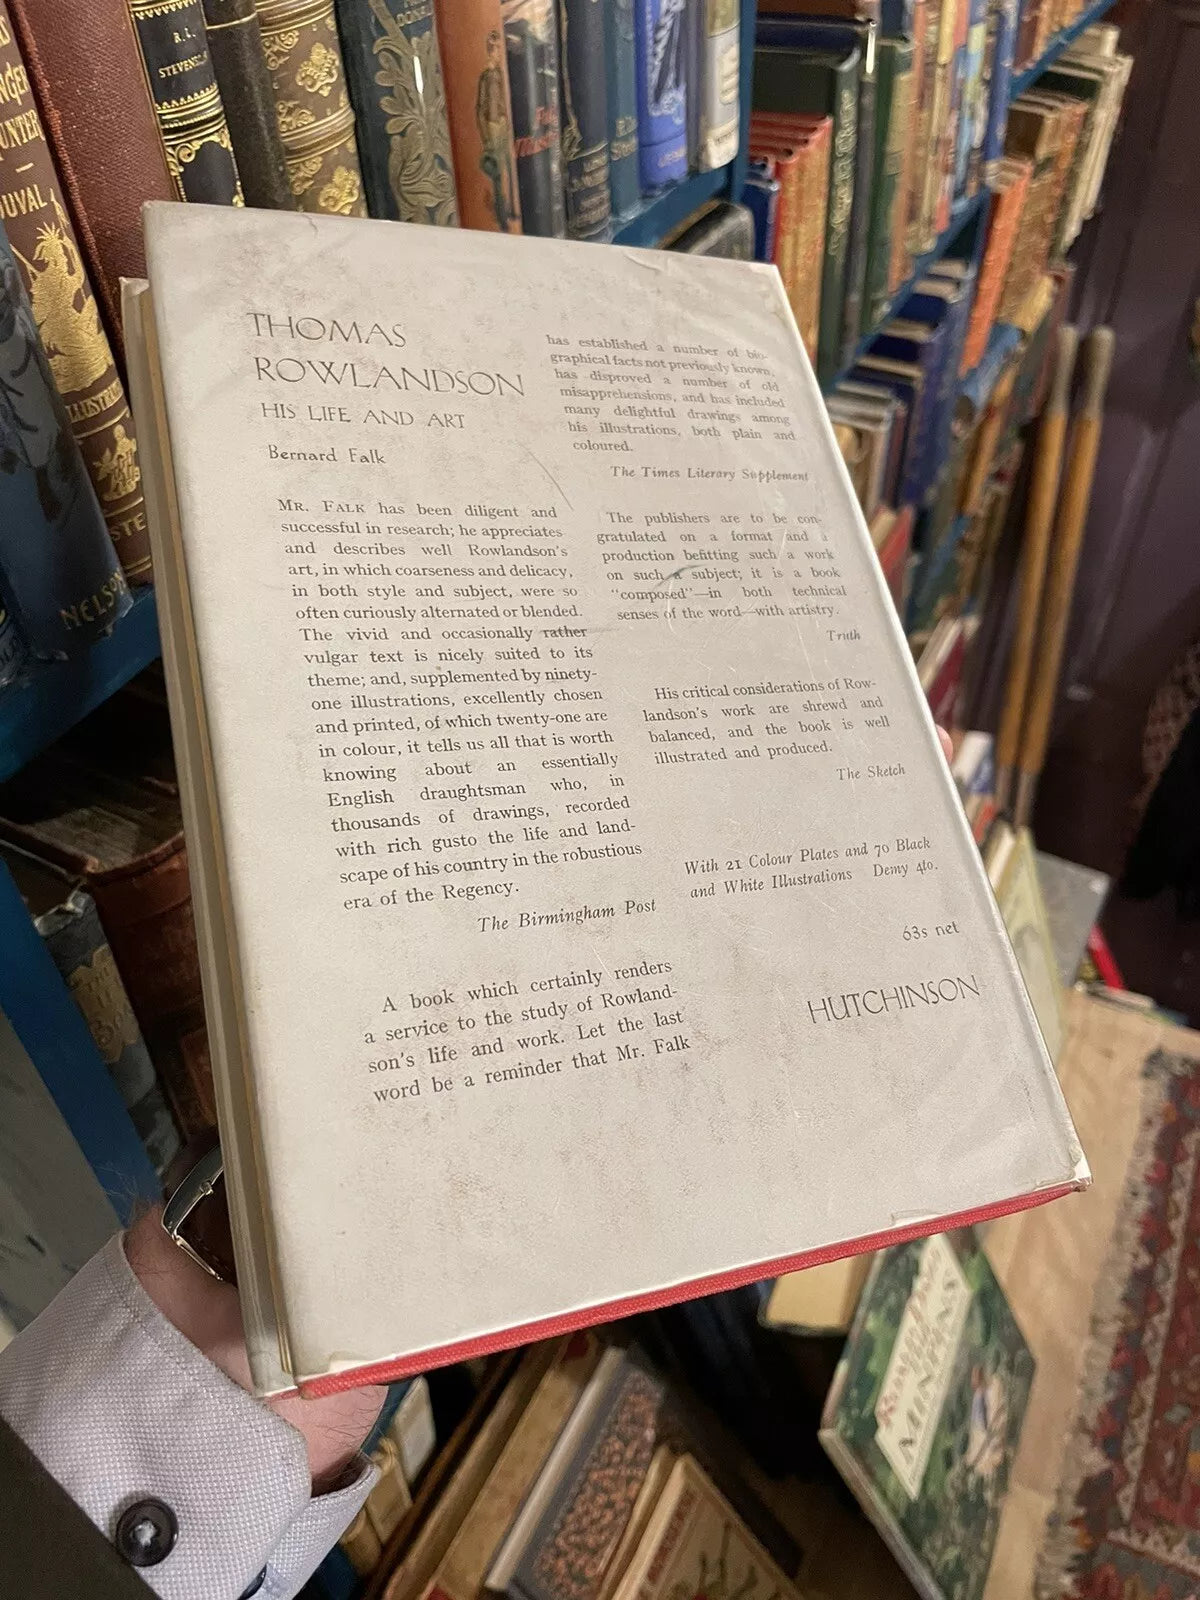 THOMAS
ROWLANDSON
HIS LIFE AND ART
Bernard Falk
MR. FALK has been diligent and
successful in research; he appreciates
and describes well Rowlandson's
art, in which coarseness and delicacy,
in both style and subject, were so
often curiously alternated or blended.
The vivid and occasionally rather
vulgar text is nicely suited to its
theme; and, supplemented by ninety-
one illustrations, excellently chosen
and printed, of which twenty-one are
in colour, it tells us all that is worth
knowing about an essentially
English draughtsman who, in
thousands of drawings, recorded
with rich gusto the life and land-
scape of his country in the robustious
era of the Regency.
The Birmingham Post
A book which certainly renders
a service to the study of Rowland-
son's life and work. Let the last
word be a reminder that Mr. Falk
has established a number of bio-
graphical facts not previously known,
has disproved a number of old
misapprehensions, and has included
many delightful drawings among
his illustrations, both plain and
coloured.
The Times Literary Supplement
The publishers are to be con-
gratulated on a format and a
production befitting such a work
on such a subject; it is a book
"composed"—in both technical
senses of the word—with artistry.
Truth
His critical considerations of Row-
landson's work are shrewd and
balanced, and the book is well
illustrated and produced.
The Sketch
With 21 Colour Plates and 70 Black
and White Illustrations Demy 4to.
63s net
HUTCHINSON
R. L.
STEVENS
DUVAL
NELSON